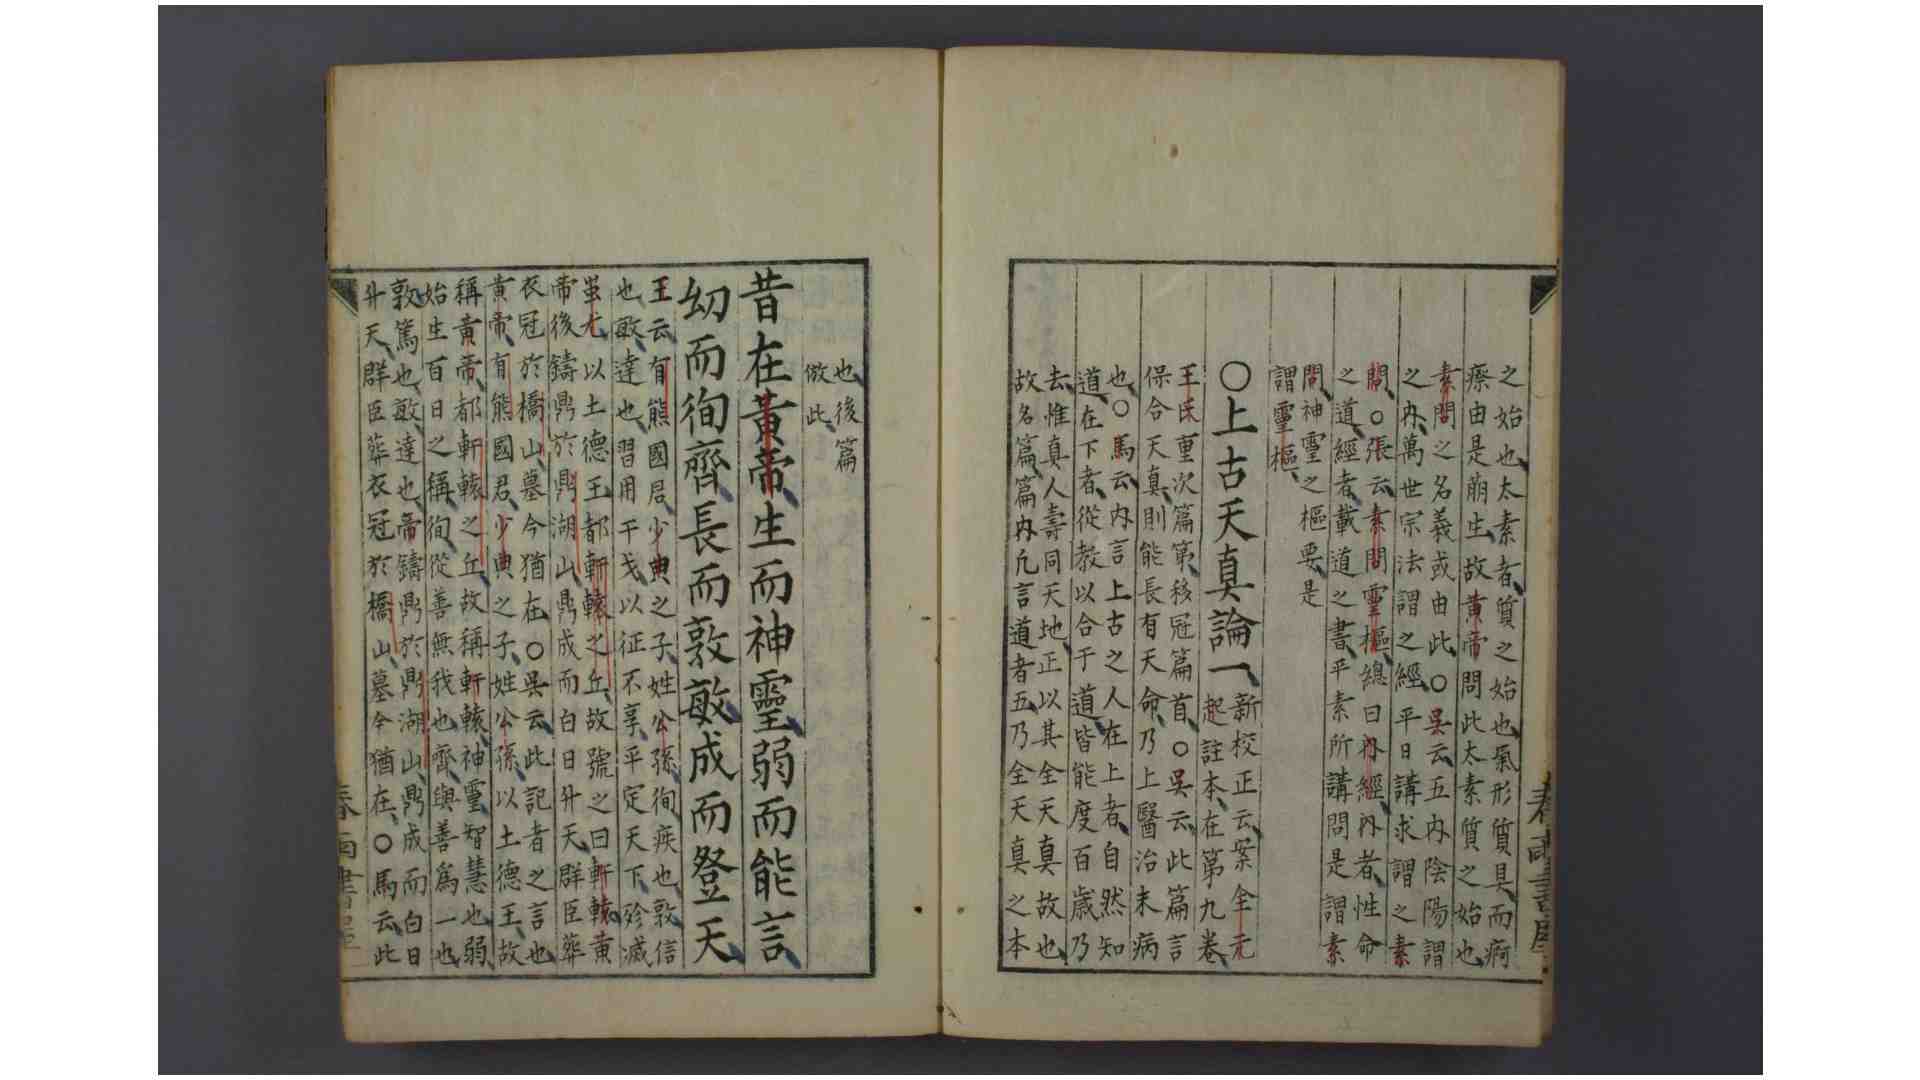 之始也太素者質之始也氣形質具而痾
瘵由是萠生故黃帝問此太素質之始也
素問之名義或由此○吳云五內陰陽謂
之內萬世宗法謂之經平日講求謂之素
問○張云素問靈樞總曰內經內者性命
之道經者載道之書平素所講問是謂素
問神靈之樞要是
謂靈樞
○上古天真論一
新校正云案全元
起註本在第九卷
王氏重次篇第移冠篇首○吳云此篇言
保合天真則能長有天命乃上醫治未病
也○馬云內言上古之人在上者自然知
道在下者從教以合于道皆能度百歲乃
去惟真人壽同天地正以其全天真故也
故名篇篇內凡言道者五乃全天真之本
也後篇
倣此
昔在黃帝生而神靈弱而能言
幼而徇齊長而敦敏成而登天
王云有熊國君少典之子姓公孫徇疾也敦信
也敏達也習用干戈以征不享平定天下殄滅
蚩尤以土德王都軒轅之丘故號之曰軒轅黃
帝後鑄鼎於鼎湖山鼎成而白日升天群臣葬
衣冠於橋山墓今猶在○吳云此記者之言也
黃帝有熊國君少典之子姓公孫以土德王故
稱黃帝都軒轅之丘故稱軒轅神靈智慧也弱
始生百日之稱徇從善無我也齊與善爲一也
敦篤也敏達也帝鑄鼎於鼎湖山鼎成而白日
升天群臣葬衣冠於橋山墓今猶在○馬云此